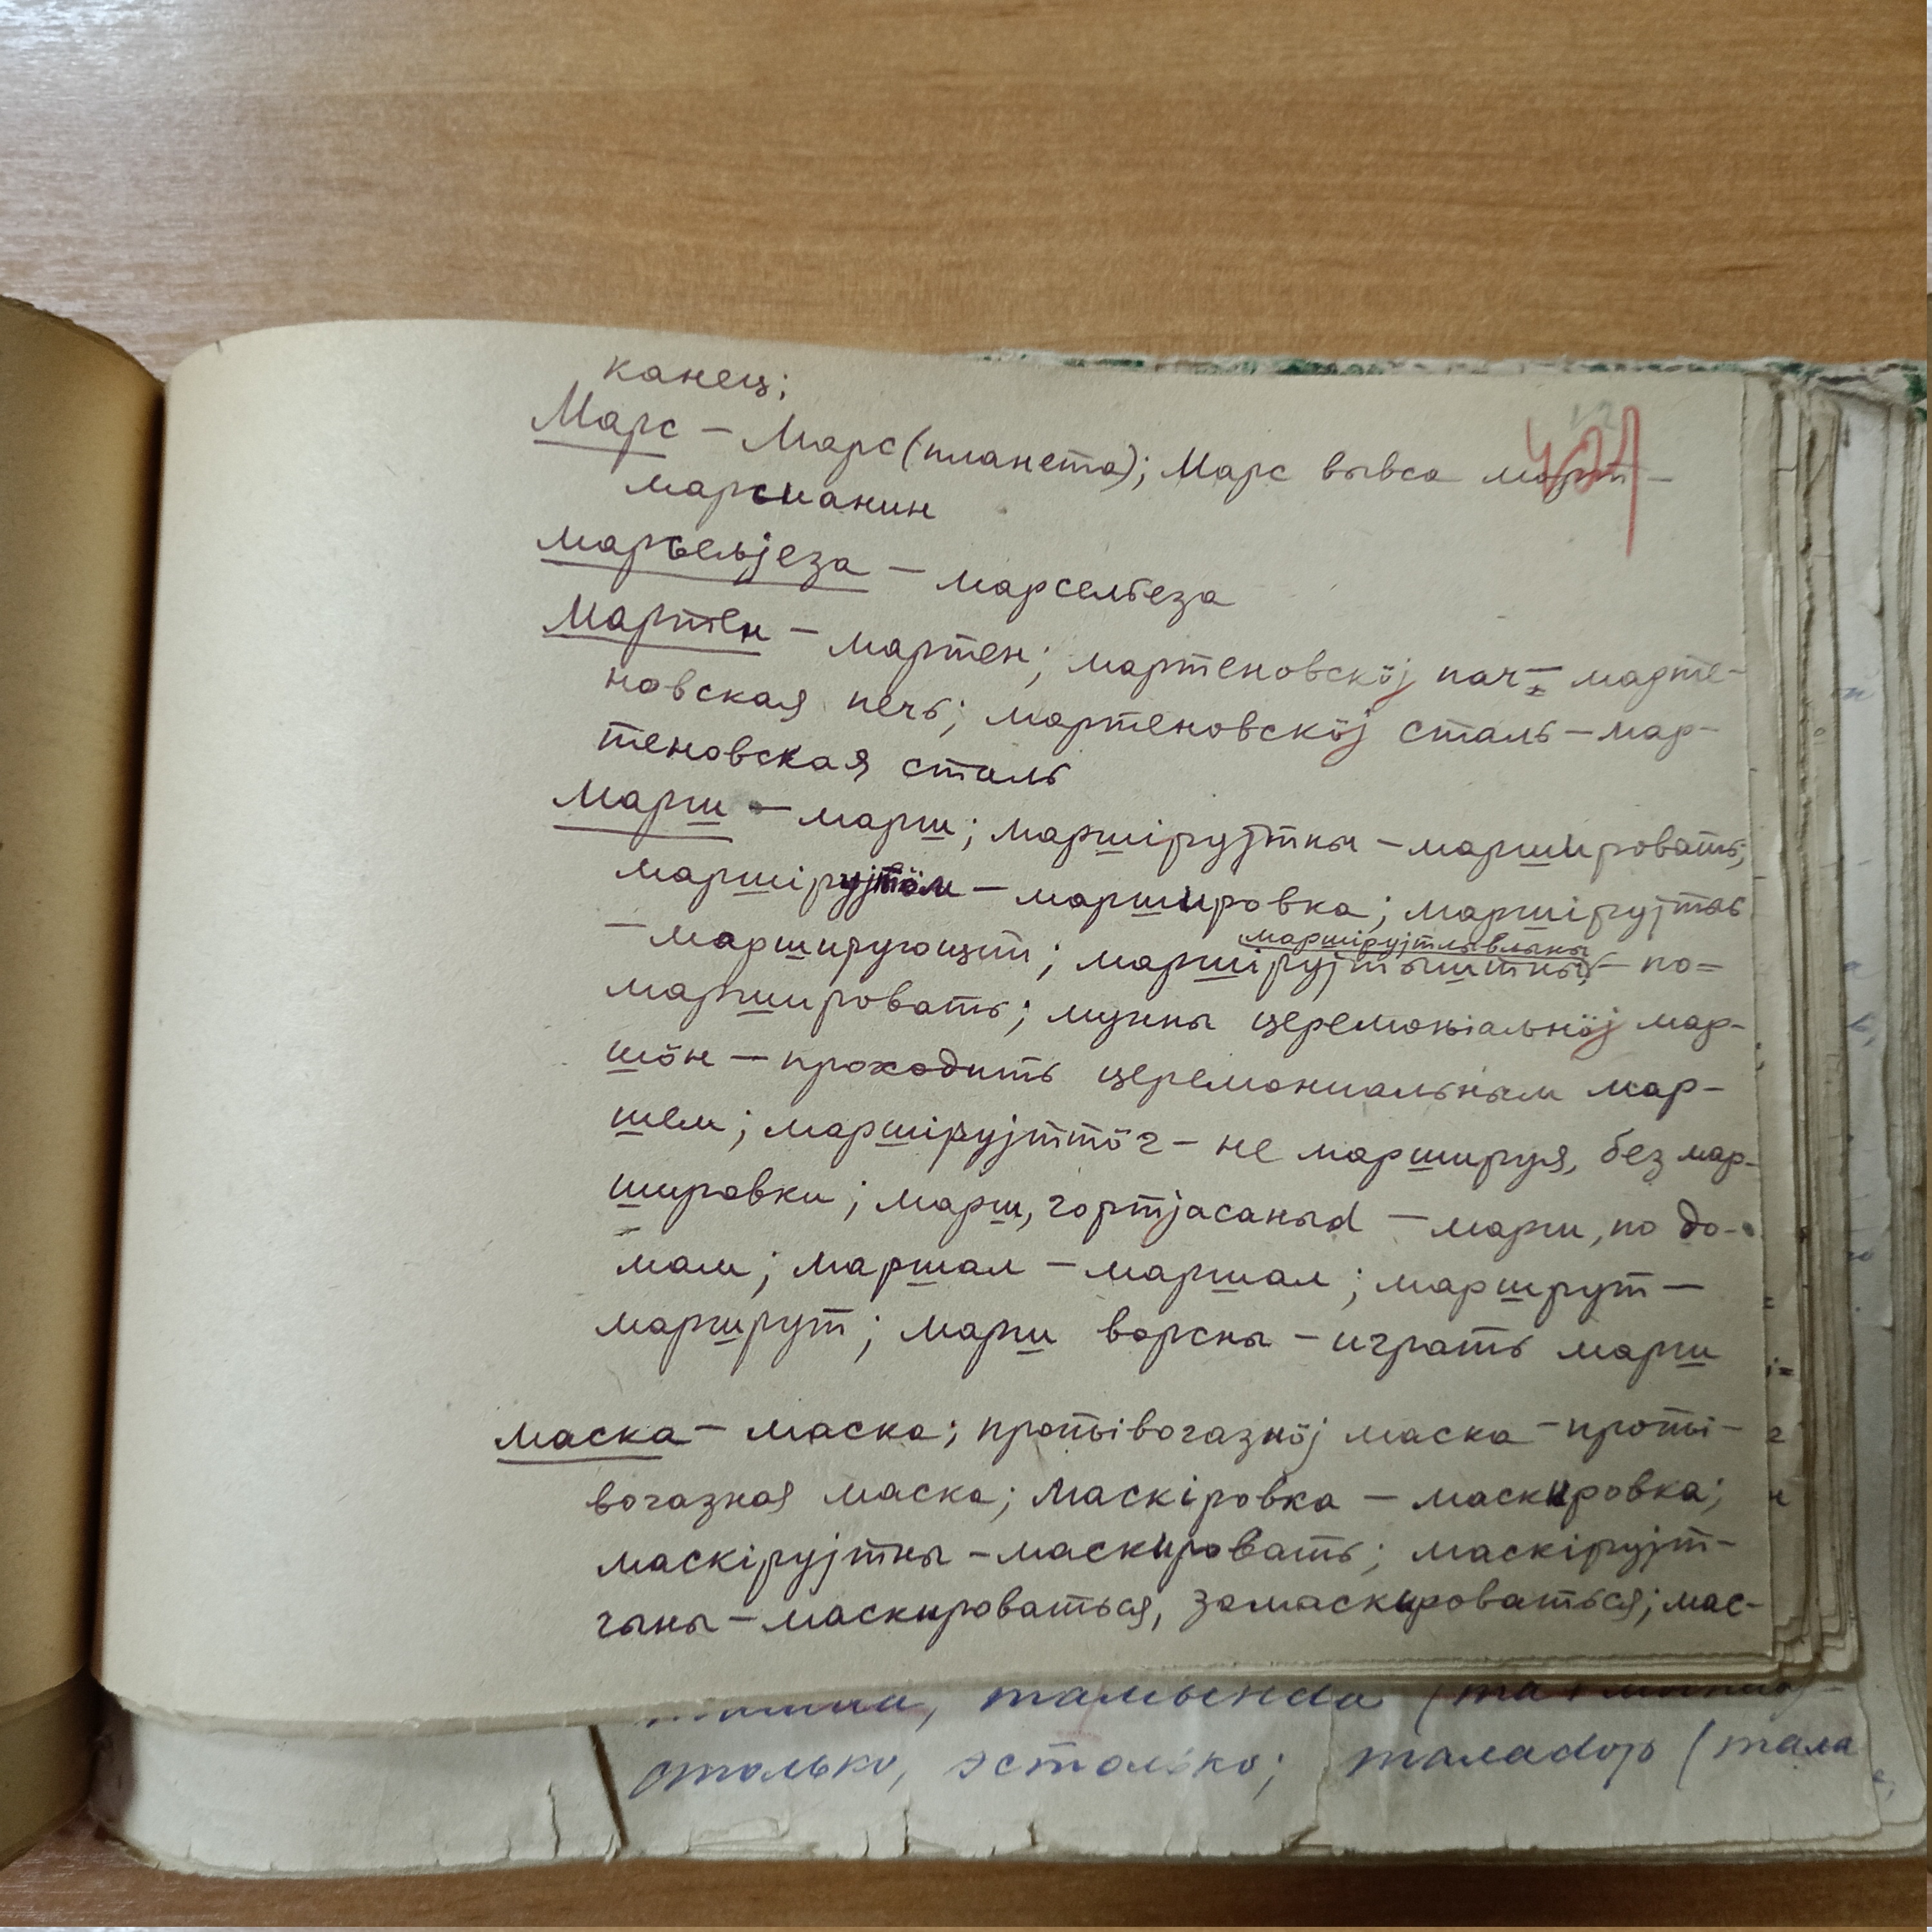 канец;
Марс – Марс (планета); Марс вывса морт –
марсианин
марсельјеза – марсельеза
мартен – мартен; мартеновскӧј пач – марте-
новская печь; мартеновскӧј сталь – мар-
теновская сталь
марш – марш; маршірујтны – маршировать;
маршірујтӧм – маршировка; маршірујтыс
маршірујтлывлыны
– марширующий; маршірујтыштны – по=
маршировать; мунны церемоніальнӧј мар-
шӧн – проходить церемониальным мар-
шем; маршірујттӧг – не маршируя, без мар-
шировки; марш, гортјасаныd – марш, по до-
мам; маршал – маршал; маршрут –
маршрут; марш ворсны – играть марш
маска – маска; противогазнӧј маска – проти-
вогазная маска; маскіровка – маскировка;
маскірујтны – маскировать; маскірујт-
чыны – маскироваться, замаскироваться; мас-
столько, эстолько; талаdор (тала